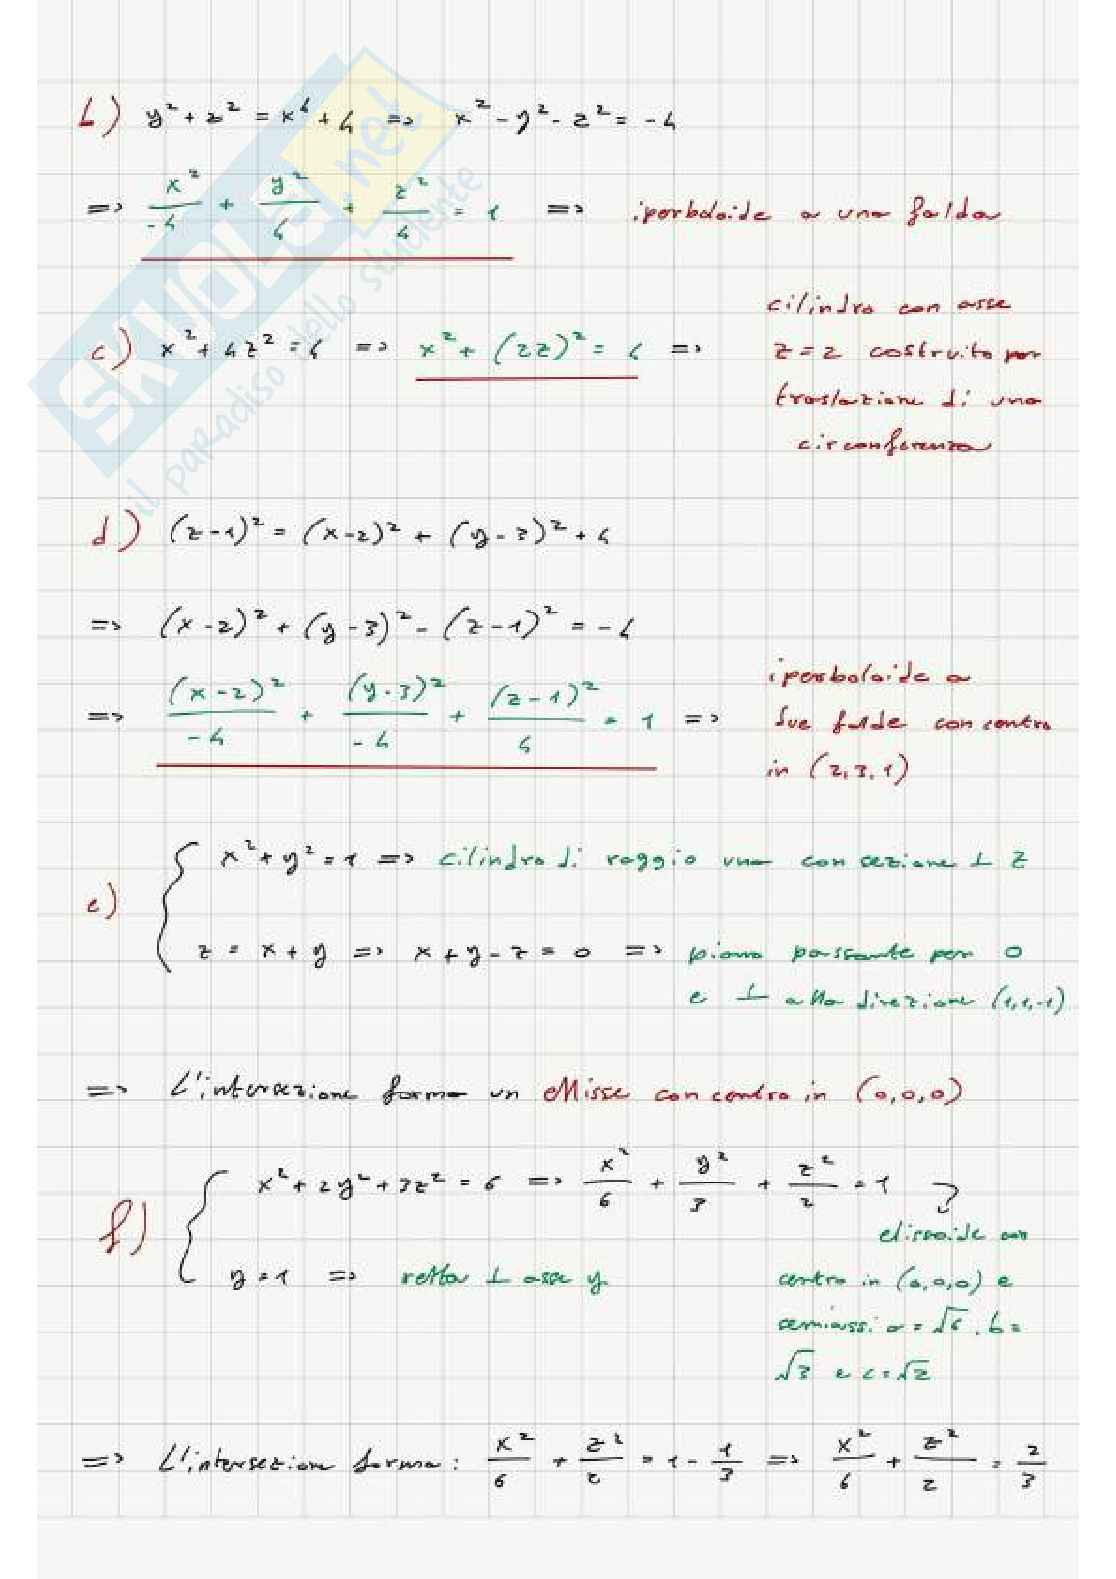 b) y² + z² = x² + 4 => x² - y² - z² = -4
=> x²/-4 + y²/4 + z²/4 = 1 => iperboloide a una falda
c) x² + 4z² = 4 => x² + (2z)² = 4 =>
cilindro con asse
z = 2 costruito per
traslazione di una
circonferenza
d) (z-1)² = (x-2)² + (y-3)² + 4
=> (x-2)² + (y-3)² - (z-1)² = -4
=> (x-2)²/-4 + (y-3)²/-4 + (z-1)²/4 = 1 =>
iperboloide a
due falde con centro
in (2,3,1)
e) { x² + y² = 1 => cilindro di raggio uno con sezione ⊥ z
z = x + y => x + y - z = 0 => piano passante per 0
e ⊥ alla direzione (1,1,-1)
=> L'intersezione forma un ellisse con centro in (0,0,0)
f) { x² + 2y² + 3z² = 6 => x²/6 + y²/3 + z²/2 = 1
y = 1 => retta ⊥ asse y
elissoide con
centro in (0,0,0) e
semiassi a = √6, b =
√3 e c = √2
=> L'intersezione forma: x²/6 + z²/2 = 1 - 1/3 => x²/6 + z²/2 = 2/3
SKUOLA.net
il paradiso dello studente